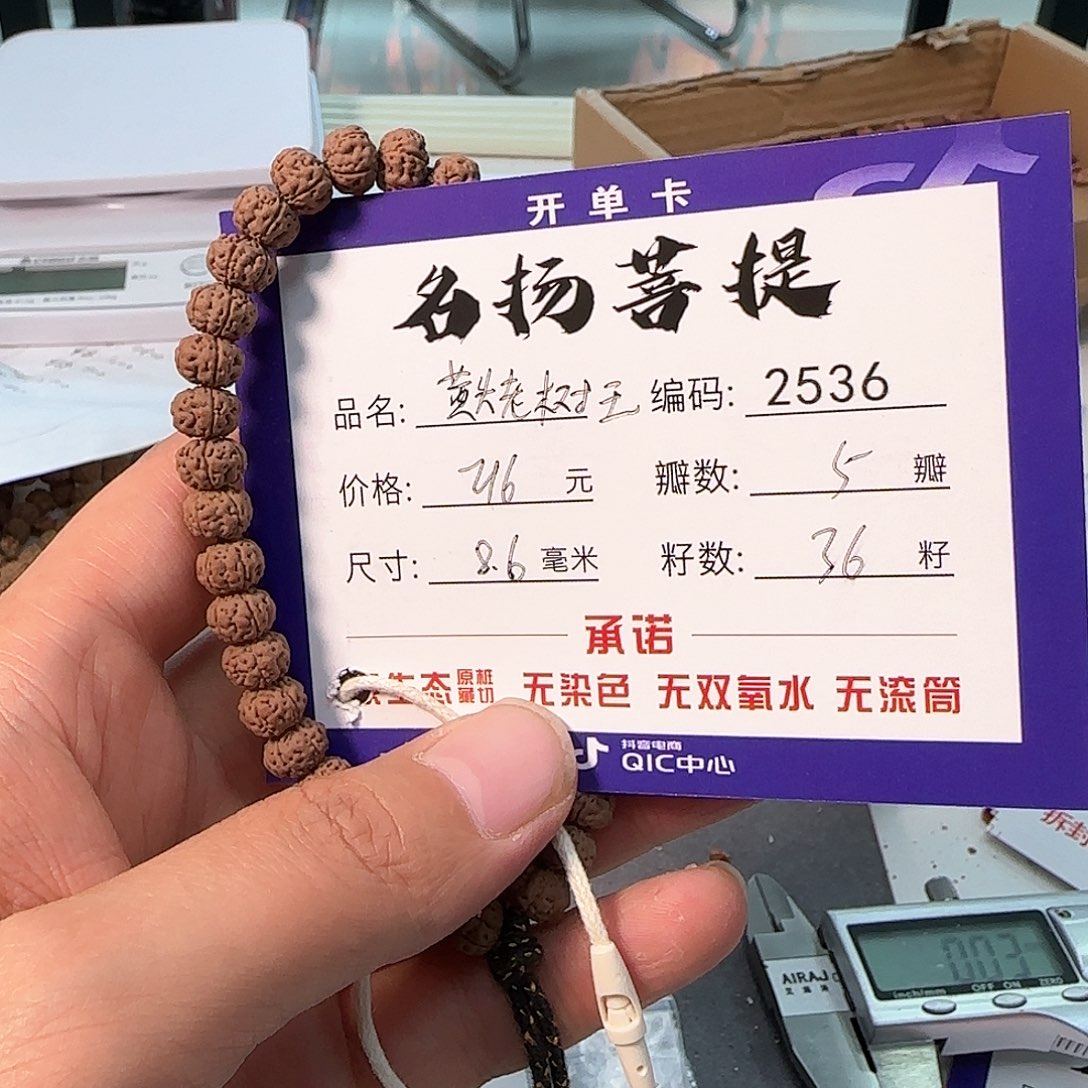 开单卡
名扬菩提
品名: 黄火老树王 编码: 2536
价格: 746 元 瓣数: 5 瓣
尺寸: 8.6 毫米 籽数: 36 籽
承诺
生态 原桩藏切 无染色 无双氧水 无滚筒
抖音电商
QIC中心
拆封
AIRAJ
0.03
inch/mm OFF ON ZERO